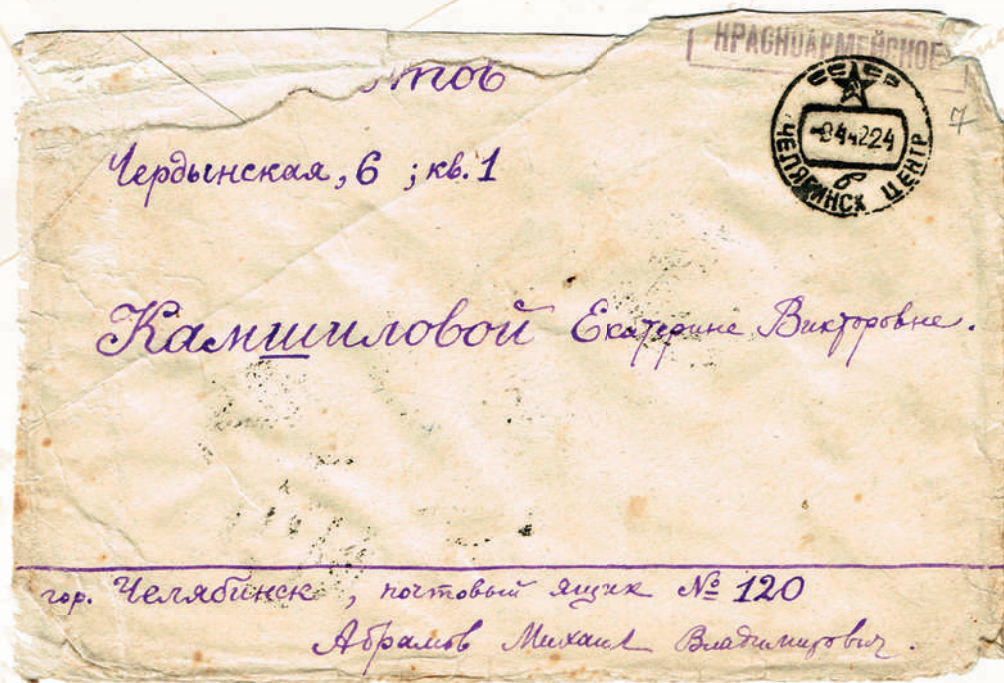 КРАСНОАРМЕЙСКОЕ
СССР
-9442224
ЧЕЛЯБИНСК ЦЕНТР
в
7
Чердынская, 6 ; кв. 1
Камшиловой Екатерине Викторовне.
гор. Челябинск, почтовый ящик № 120
Абрамов Михаил Владимирович.